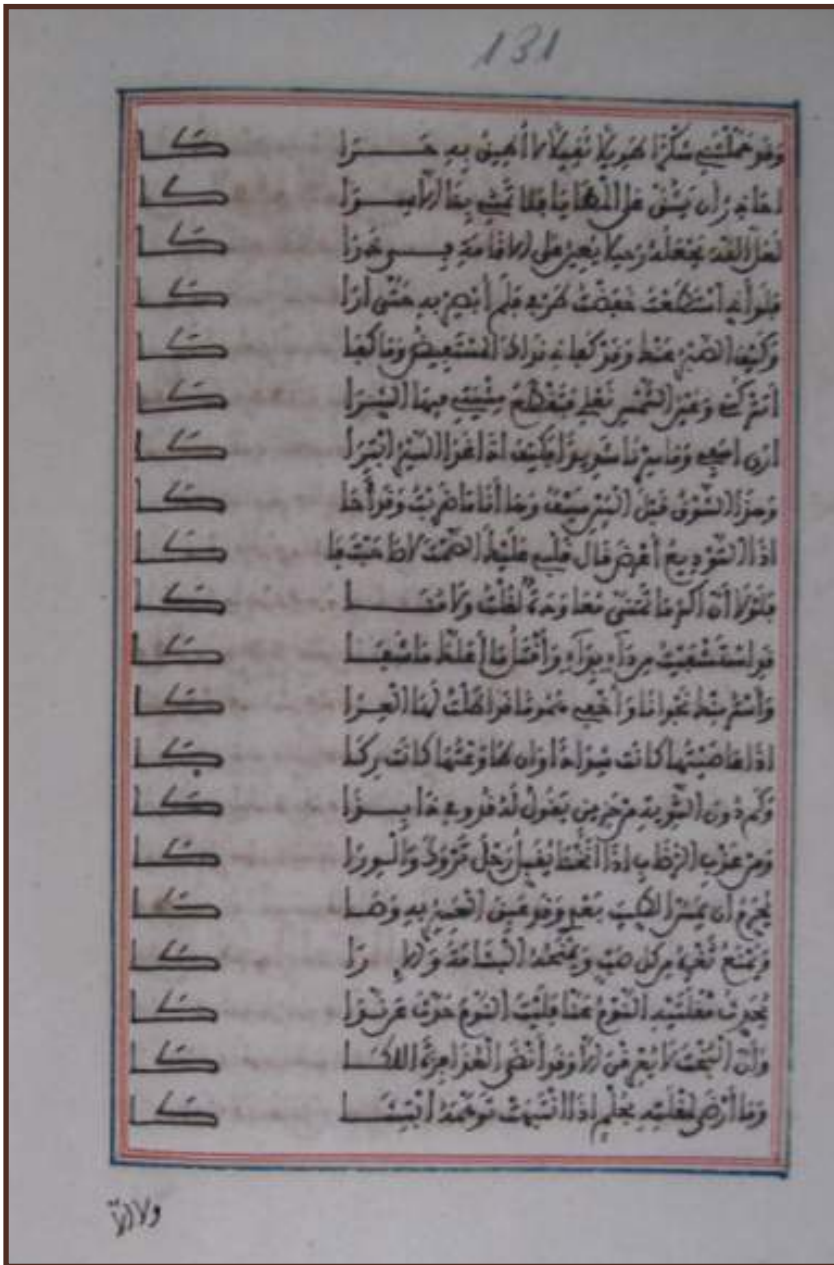 131
وقد حملتني شكرا طويلا ثقيلا لا أطيق به حرا كا
أحاذر أن يشق على المطايا فلا تمشي بنا إلا سوا كا
لعل الله يجعله رحيلا يعين على الإقامة في ذرا كا
فلو أني استطعت خفضت طرفي فلم أبصر به حتى أرا كا
وكيف الصبر عنك وقد كفاني نداك المستفيض وما كفا كا
أتتركني وعين الشمس نعلي فتقطع مشيتي فيها الشرا كا
أرى أسفي وما سرنا شديدا فكيف إذا غدا السير ابترا كا
وهذا الشوق قبل البين سيف وها أنا ما ضربت وقد أحا كا
إذا التوديع أعرض قال قلبي عليك الصمت لا صاحبت فا كا
فلولا أن أكثر ما تمنى معاودة لقلت ولا منا كا
قد استشفيت من داء بداء وأقتل ما أعلك ما شفا كا
وأستر منك نجوانا وأخفي هموما قد أطلت لها العرا كا
إذا عاصيتها كانت شدادا وإن طاوعتها كانت ركا كا
وكم دون الثوية من حزين يقول له قدومي ذا بذا كا
ومن عذب الرضاب إذا أنخنا يقبل رحل تروك والورا كا
يحرم أن يمس الطيب بعدي وقد عبق العبير به وصا كا
ويمنع ثغره من كل صب ويمنحه البشامة والأرا كا
يحدث مقلتيه النوم عنا فليت النوم حدث عن ندا كا
وأن البخت لا يعرقن إلا وقد أنضى العذافرة اللكا كا
وما أرضى لمقلته بحلم إذا انتبهت توهمه ابتشا كا
ولا إلا